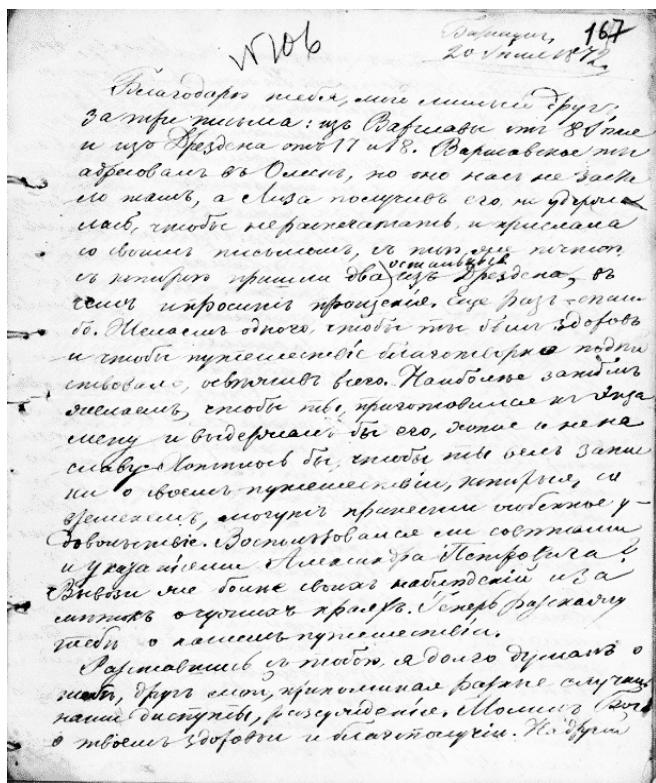 167
№ 106
20 1872
Благодарю тебя, мой милый друг,
за три письма: изъ Варшавы отъ 8
и изъ Дрездена отъ 17 и 18. Варшавское ты
адресовалъ въ но оно насъ не заста-
ло тамъ, а Лиза получивъ его, не удержа-
лась, чтобы не распечатать, и прислала
со своимъ письмомъ, съ почтою,
съ которою пришли два остальныя изъ Дрездена, въ
чемъ и проситъ прощенія. Еще разъ спаси-
бо. Желаемъ одного, чтобы ты былъ здоровъ
и чтобы путешествіе благотворно подѣй-
ствовало, освѣживъ всего. Наиболѣе затѣмъ
желаемъ, чтобы ты приготовился къ экза-
мену и выдержалъ бы его, хотя и не на
славу. Хотѣлось бы, чтобы ты велъ запис-
ки о своемъ путешествіи, которыя, со
временемъ, могутъ принести особенное у-
довольствіе. Воспользовался ли совѣтами
и указаніями Александра Петровича?
Вывози же болѣе своихъ наблюденій и за-
мѣтокъ о чужихъ краяхъ. Теперь разскажу
тебѣ о нашемъ путешествіи.
Разставшись съ тобою, я долго думалъ о
тебѣ, другъ мой, припоминая разные случаи,
наши диспуты, разсужденія. Молилъ Бога
о твоемъ здоровьи и благополучіи. На другой